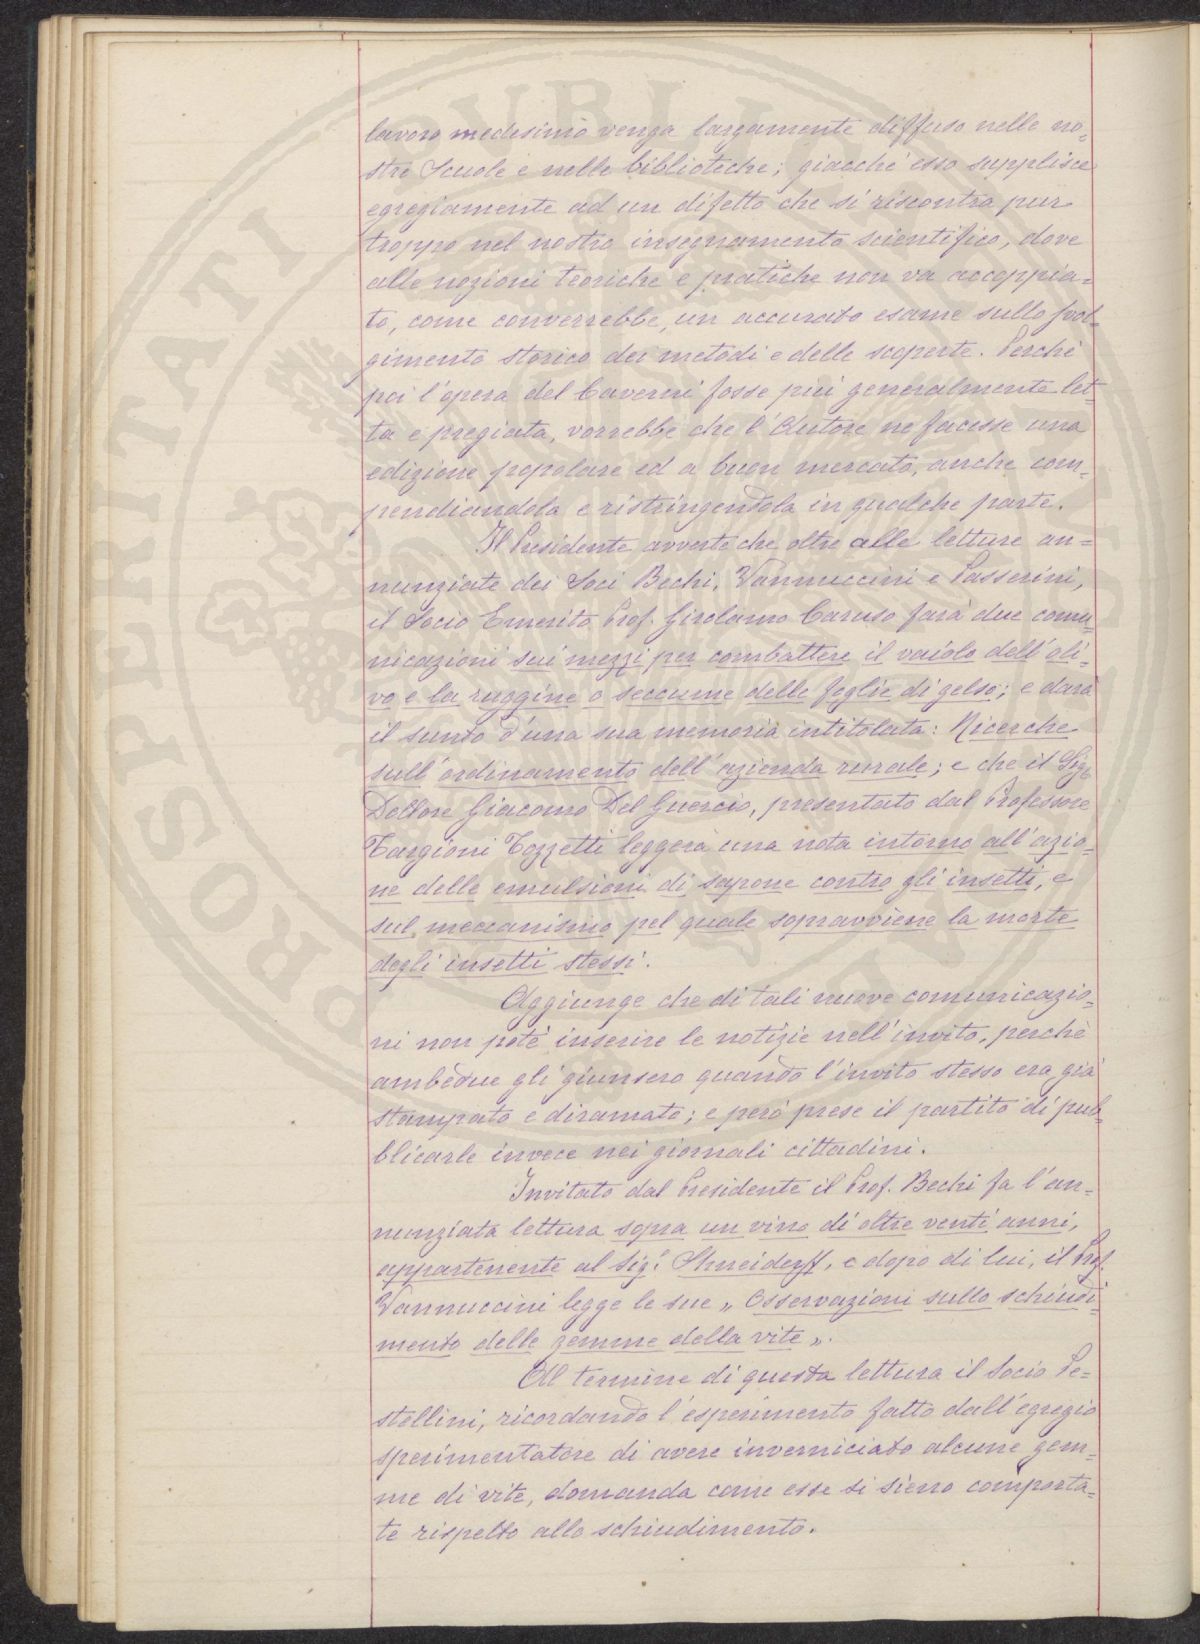 lavoro medesimo venga largamente diffuso nelle no=
stre Scuole e nelle biblioteche; giacchè esso supplisce
egregiamente ad un difetto che si riscontra pur
troppo nel nostro insegnamento scientifico, dove
alle nozioni teoriche e pratiche non va accoppia=
to, come converrebbe, un accurato esame sullo svol=
gimento storico dei metodi e delle scoperte. Perchè
poi l'opera del Caverni fosse più generalmente let=
ta e pregiata, vorrebbe che l'Autore ne facesse una
edizione popolare ed a buon mercato, anche com=
pendiandola e ristringendola in qualche parte.
Il Presidente avverte che oltre alle letture an=
nunziate dei Soci Bechi, Vannuccini e Passerini,
il Socio Emerito Prof. Girolamo Caruso farà due comu=
nicazioni sui mezzi per combattere il vaiolo dell'oli=
vo e la ruggine o seccume delle foglie di gelso; e darà
il sunto d'una sua memoria intitolata: Ricerche
sull'ordinamento dell'azienda rurale; e che il Sig.
Dottore Giacomo Del Guercio, presentato dal Professore
Targioni Tozzetti leggerà una nota intorno all'azio=
ne delle emulsioni di sapone contro gli insetti, e
sul meccanismo pel quale sopravviene la morte
degli insetti stessi.
Aggiunge che di tali nuove comunicazio=
ni non potè inserire le notizie nell'invito, perchè
ambedue gli giunsero quando l'invito stesso era già
stampato e diramato; e però prese il partito di pub=
blicarle invece nei giornali cittadini.
Invitato dal Presidente il Prof. Bechi fa l'an=
nunziata lettura sopra un vino di oltre venti anni,
appartenente al Sig. Shneiderff, e dopo di lui, il Prof.
Vannuccini legge le sue „ Osservazioni sullo schiudi=
mento delle gemme della vite „.
Al termine di questa lettura il Socio Pe=
stellini, ricordando l'esperimento fatto dall'egregio
sperimentatore di avere inverniciato alcune gem=
me di vite, domanda come esse si sieno comporta=
te rispetto allo schiudimento.
PROSPERITATI PUBLICAE